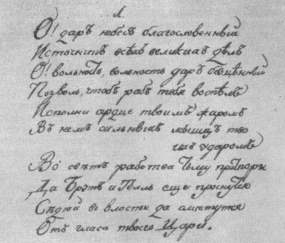 1.
О! даръ небесъ благословенный
Источникъ всѣхъ великихъ дѣлъ
О! вольность, вольность даръ безцѣнный
Позволь, чтобъ рабъ тебя воспѣлъ
Исполни сердце твоимъ жаромъ
Въ немъ сильныхъ мышцъ тво
ихъ ударомъ
Во свѣтъ рабства тьму притвори
Да Брутъ и Телль еще проснутся
Седяй во власти да смятутся
Отъ гласа твоего Цари.